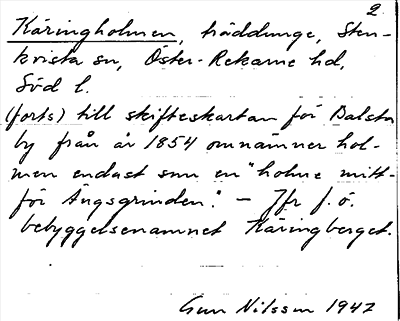 2.
Käringholmen, träddunge, Sten-
kvista sn, Öster-Rekarne hd,
Söd l.
(forts) till skifteskartan för Balsta
by från år 1854 omnämner hol-
men endast som en "holme mitt-
för Ängsgrinden." – Jfr f.ö.
bebyggelsenamnet Käringberget.
Gun Nilsson 1947